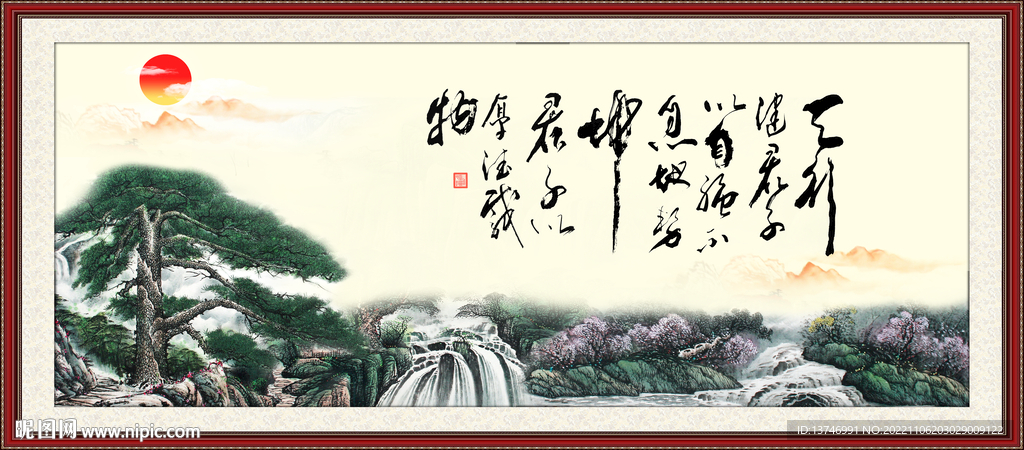 天行
健君子
以自强不
息地势
坤
君子以
厚德载
物
昵图网 www.nipic.com
ID:13746991 NO:20221106203029009122